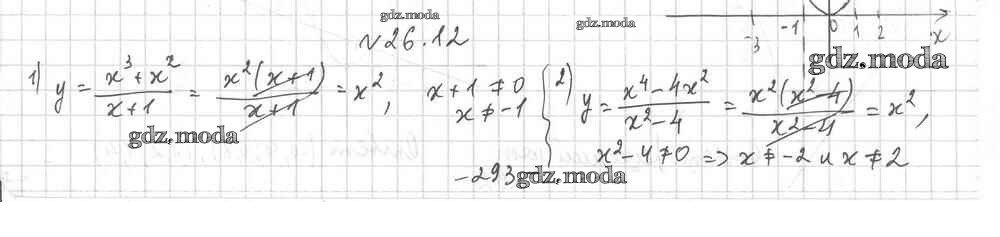 gdz.moda
gdz.moda
№26.12
-3 -1 0 1 2 x
gdz.moda
1) y = (x³ + x²)/(x + 1) = x²(x + 1)/(x + 1) = x², x + 1 ≠ 0
x ≠ -1
gdz.moda
2) y = (x⁴ - 4x²)/(x² - 4) = x²(x² - 4)/(x² - 4) = x²,
x² - 4 ≠ 0 => x ≠ -2 и x ≠ 2
- 293 -
gdz.moda